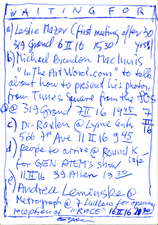 WAITING FOR
a) Leslie Mazor (first meeting after 30
319 Grand 6 II 16 1530 years)
b) Michael Brendan MacInnis
"InTheArtWord.com" to talk
about how to present his photos
from Times Square from the
@ 319 Grand 7 II 16
c) Dr. @ Lyme
566 7th Ave 11 II 16 945
d) people to arrive @ Round K
for GEN ATEM's Show
11 II 16 99 Allen 1930
e) Andrea
Metrograph @ 7 Ludlow for opening
reception of "RACE" 16 II 16 2030